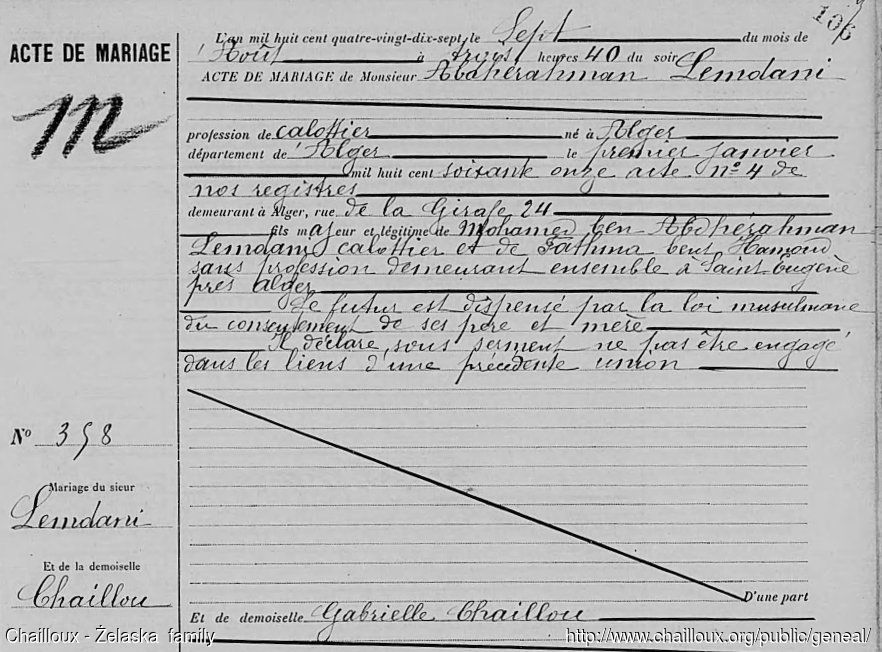 106
L'an mil huit cent quatre-vingt-dix-sept, le Sept du mois de
Août à trois heures 40 du soir
ACTE DE MARIAGE
ACTE DE MARIAGE de Monsieur Abdhérahman Lemdani
M
profession de calottier né à Alger
département de Alger le premier janvier
mil huit cent soixante onze acte Nº 4 de
nos registres
demeurant à Alger, rue de la Girafe 24
fils majeur et légitime de Mohamed ben Abdhérahman
Lemdani calottier et de Fathma bent Hamoud
sans profession demeurant ensemble à Saint Eugène
près Alger
Le futur est dispensé par la loi musulmane
du consentement de ses père et mère
Il déclare sous serment ne pas être engagé
dans les liens d'une précédente union
Nº 358
Mariage du sieur
Lemdani
Et de la demoiselle
Chaillou
D'une part
Et de demoiselle Gabrielle Chaillou
Chailloux - Želaska family
http://www.chailloux.org/public/geneal/